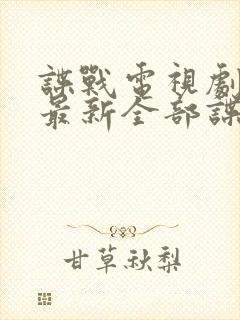 諜戰電視劇
最新全部諜
甘草秋梨